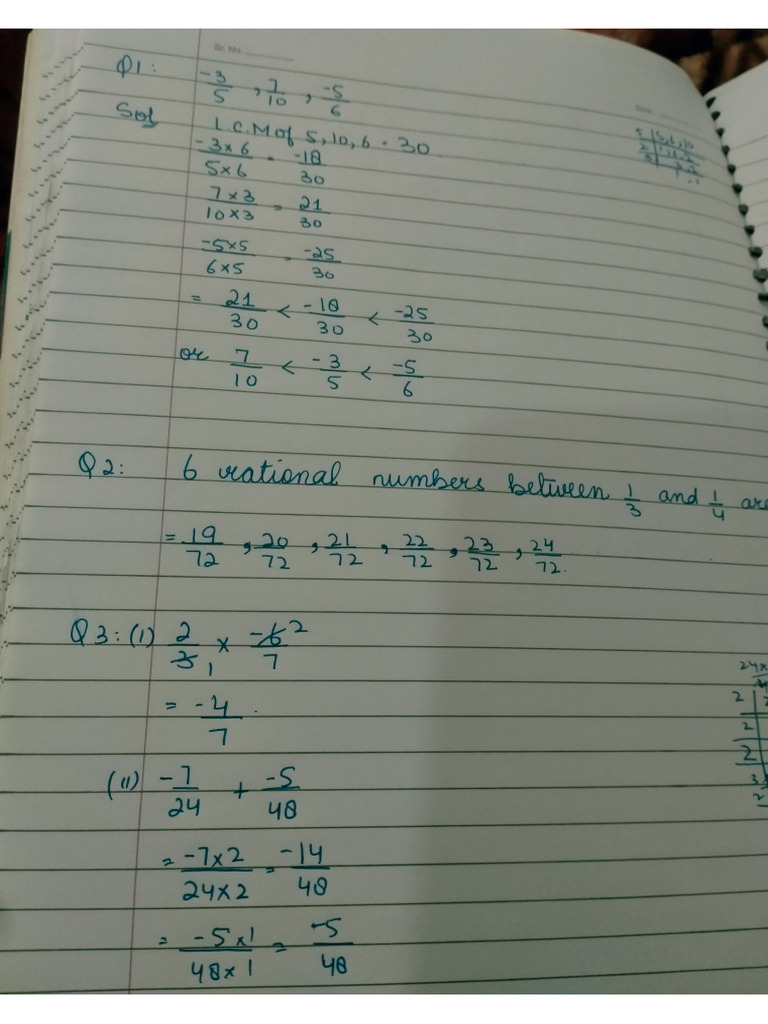 Sr. No.
Q1: -3/5 , 7/10 , -5/6
Sol L.C.M of 5, 10, 6 = 30
-3×6/5×6 = -18/30
7×3/10×3 = 21/30
-5×5/6×5 = -25/30
= 21/30 < -18/30 < -25/30
or 7/10 < -3/5 < -5/6
Q2: 6 rational numbers between 1/3 and 1/4 are
= 19/72 , 20/72 , 21/72 , 22/72 , 23/72 , 24/72.
Q3: (i) 2/3 1 × -6 2/7
= -4/7 .
(ii) -7/24 + -5/48
= -7×2/24×2 = -14/48
= -5×1/48×1 = -5/48
24×
2
2
2
3
2